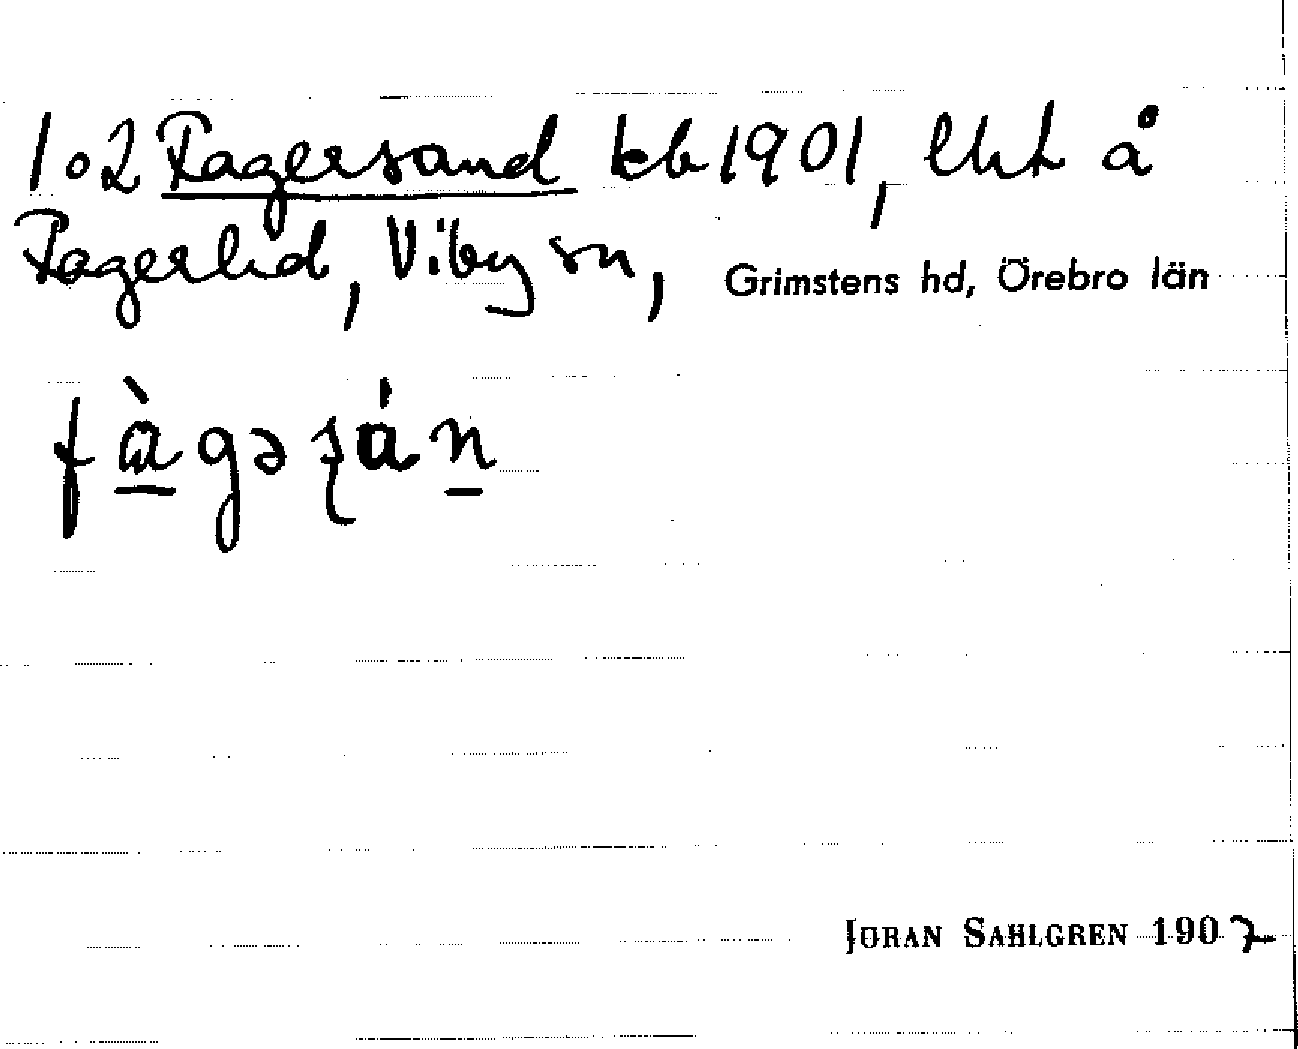 1 o 2 Fagersand kb 1901, lht å
Fagerlid, Viby sn, Grimstens hd, Örebro län
fàgəʂán
JÖRAN SAHLGREN 1907